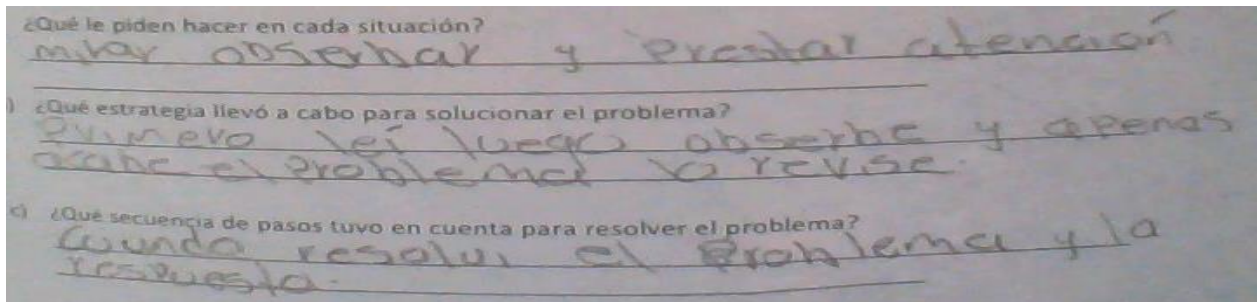 ¿Qué le piden hacer en cada situación?
mirar obserbar y Prestar atención
) ¿Qué estrategia llevó a cabo para solucionar el problema?
Primero leí luego obserbe y apenas
acabe el Problema lo revise.
c) ¿Qué secuencia de pasos tuvo en cuenta para resolver el problema?
Cuando resolvi el Problema y la
respuesta.